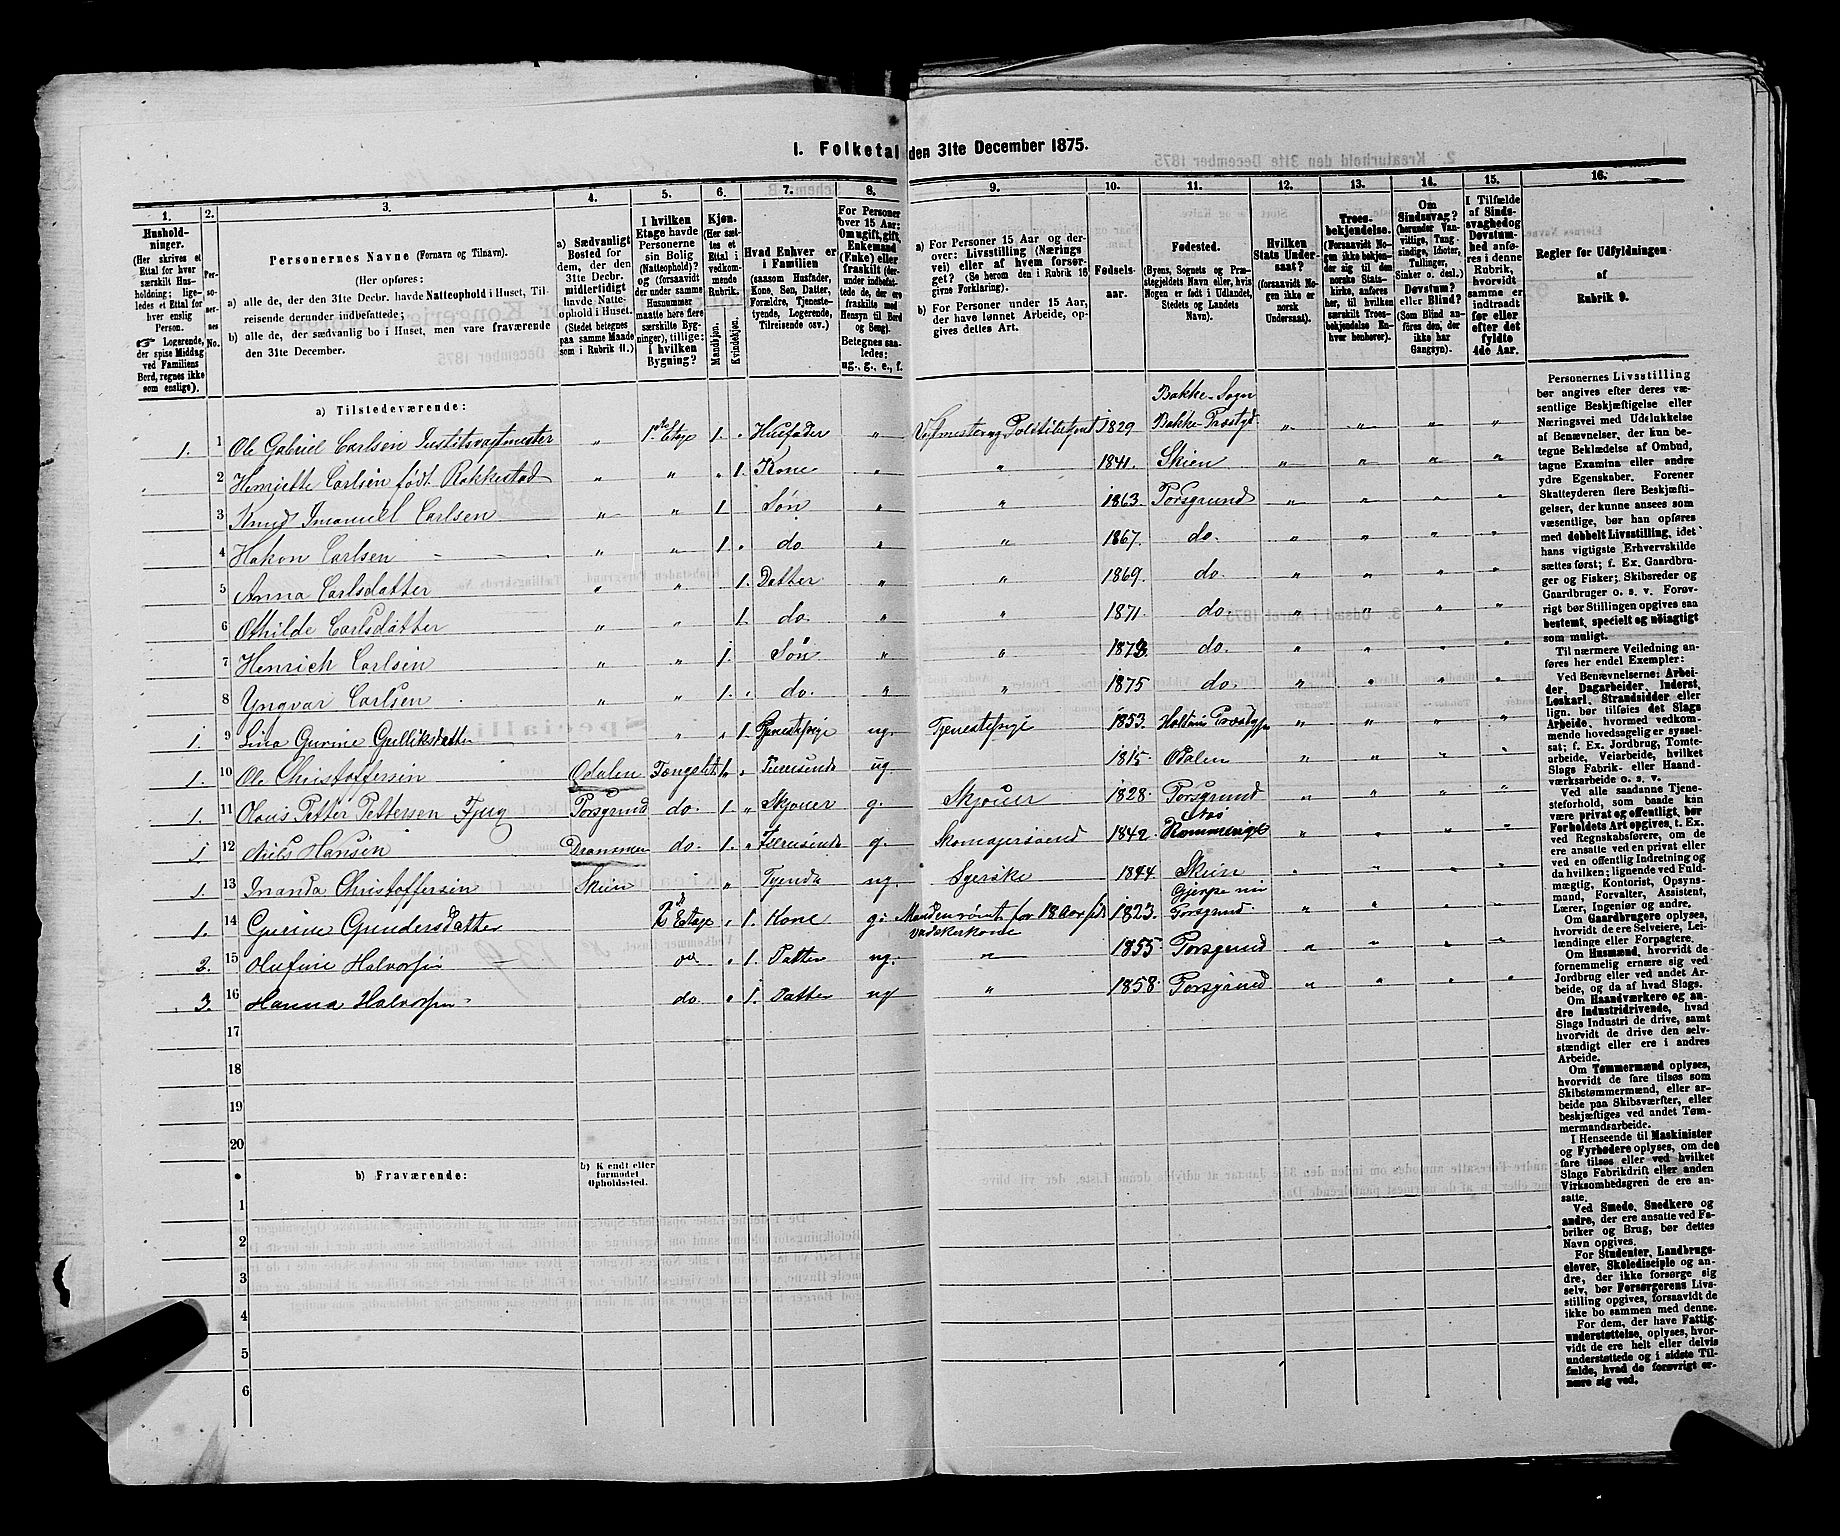 1. Folketal den 31te December 1875.
1.
Husholdninger.
(Her skrives et
Ettal for hver
særskilt Husholdning;
ligeledes et Ettal for
hver enslig
Person.
☞ Logerende,
der spise Middag
ved Familiens
Bord, regnes ikke
som enslige).
2.
Personernes No.
3.
Personernes Navne (Fornavn og Tilnavn).
(Her opføres:
a) alle de, der den 31te Decbr. havde Natteophold i Huset, Tilreisende derunder indbefattede;
b) alle de, der sædvanlig bo i Huset, men vare fraværende
den 31te December.
4.
a) Sædvanligt
Bosted for
dem, der den
31te Decbr.
midlertidigt
havde Natteophold i Huset.
(Stedet betegnes
paa samme Maade
som i Rubrik 11.)
5.
I hvilken
Etage havde
Personerne
sin Bolig
(Natteophold)?
(forsaavidt
der under samme
Husnummer
maatte høre flere
særskilte Bygninger), tillige:
i hvilken
Bygning?
6.
Kjøn.
(Her sættes et
Ettal i
vedkommende
Rubrik.
Mandkjøn.
Kvindekjøn.
7.
Hvad Enhver er
i Familien
(saasom Husfader,
Kone, Søn, Datter,
Forældre, Tjenestetyende, Logerende,
Tilreisende osv.)
8.
For Personer
over 15 Aar:
Om ugift, gift,
Enkemand
(Enke) eller
fraskilt
Betegnes saaledes:
ug., g., e., f.
9.
a) For Personer 15 Aar og derover: Livsstilling (Næringsvei) eller af hvem forsørget? (Se herom den i Rubrik 16
givne Forklaring).
b) For Personer under 15 Aar,
der have lønnet Arbeide, opgives dettes Art.
10.
Fødselsaar.
11.
Fødested.
(Byens, Sognets og Præstegjeldets Navn eller, hvis
Nogen er født i Udlandet,
Stedets og Landets
Navn).
12.
Hvilken
Stats Undersaat?
(forsaavidt Nogen ikke er
norsk
Undersaat).
13.
Troesbekjendelse.
(Forsaavidt Nogen ikke bekjender sig til den
norske Statskirke, anføres
her, til hvilken
særskilt Troesbekjendelse Enhver henhører).
14.
Om
Sindssvag?
(herunder Vanvittige, Tungsindige, Idioter,
Tullinger,
Sinker o. desl.)
Døvstum?
eller Blind?
(Som Blind anføres den, der
ikke har
Gangsyn).
15.
I Tilfælde
af Sindssvaghed og
Døvstumhed anføres i denne
Rubrik,
hvorvidt
samme er
indtraadt
før eller
efter det
fyldte
4de Aar.
16.
Regler for Udfyldningen
af
Rubrik 9.
a) Tilstedeværende:
1. 1 Ole Gabriel Carlsen Justitsvagtmester " 1ste Etage 1. " Husfader " 1829 Bakke Sogn Bakke Præstgd " " " "
2 Henriette Carlsen født Rakkestad " " " 1. Kone " " 1841. Skien " " " "
3 Knud Imanuel Carlsen " " 1 Søn " " 1863. Porsgrund " " " "
4 Hakon Carlsen " " 1. " do. " " 1867. do. " " " "
5 Anna Carlsdatter " " 1. Datter " " 1869. do. " " " "
6 Othilde Carlsdatter " " 1. do. " " 1871. do. " " " "
7 Henrich Carlsen " " 1. Søn " " 1873. do. " " " "
8 Yngvar Carlsen " " 1. " do. " " 1875 do. " " " "
1. 9 Lina Gurine Gulliksdatter " " 1 Tjenestepige ug. Tjenestepige 1853. " " " "
1. 10 Ole Christoffersen Odalen 1. " ug 1815. Odalen " " " "
1. 11 Olaus Petter Pettersen Porsgrund do. 1. " Skjøuer g. Skjøuer 1828. Porsgrund " " " "
1 12 Niels Hansen Drammen do. 1. " g. 1849 " " " "
1. 13 Inanda Christoffersen Skien " " Tjende ug. Syerske 1844 Skien " " " "
1. 14 Gurine Gundersdatter 2d Etage " 1. Kone g. 1823. Gjerpe Porsgrund " " " "
2. 15 Olufine Halvorsen do " 1. Datter ug. " 1855 Porsgrund " " " "
3. 16 Hanna Halvorsen do. " 1. Datter ug " 1858 Porsgrund " " " "
17
18
19
20
b) Fraværende:
b) Kjendt eller
formodet
Opholdssted.
1
2
3
4
5
6
Personernes Livsstilling
bør angives efter deres væsentlige Beskjæftigelse eller
Næringsvei med Udelukkelse
af Benævnelser, der kun betegne Beklædelse af Ombud,
tagne Examina eller andre
ydre Egenskaber. Forener
Skatteyderen flere Beskjæftigelser, der kunne ansees som
væsentlige, bør han opføres
med dobbelt Livsstilling, idet
hans vigtigste Erhvervskilde
sættes først; f. Ex. Gaardbruger og Fisker; Skibsreder og
Gaardbruger o. s. v. Forøvrigt bør Stillingen opgives saa
bestemt, specielt og nøiagtigt
som muligt.
Til nærmere Veiledning anføres her endel Exempler:
Ved Benævnelserne: Arbeider, Dagarbeider, Inderst,
Løskarl, Strandsidder eller
lign. bør tilføies det Slags
Arbeide, hvormed vedkommende hovedsagelig er sysselsat; f. Ex. Jordbrug, Tomtearbeide, Veiarbeide, hvilket
Slags Fabrik- eller Haandværksarbeide o. s. v.
Ved alle saadanne Tjenesteforhold, som baade kan
være privat og offentligt, bør
Forholdets Art opgives, t. Ex.
ved Regnskabsførere, om de
ere ansatte ved en privat eller
ved en offentlig Indretning og
da hvilken; lignende ved Fuldmægtig, Kontorist, Opsynsmand, Forvalter, Assistent,
Lærer, Ingeniør og andre.
Om Gaardbrugere oplyses,
hvorvidt de ere Selveiere, Leilændinge eller Forpagtere.
Om Husmænd, hvorvidt de
fornemmelig ernære sig ved
Jordbrug eller ved andet Arbeide, og da af hvad Slags.
Om Haandværkere og andre Industridrivende, hvad
Slags Industri de drive, samt
hvorvidt de drive den selvstændigt eller ere i andres
Arbeide.
Om Tømmermænd oplyses,
hvorvidt de fare tilsøs som
Skibstømmermænd, eller arbeide paa Skibsværfter, eller
beskjæftiges ved andet Tømmermandsarbeide.
I Henseende til Maskinister
og Fyrbødere oplyses, om de
fare tilsøs eller ved hvilket
Slags Fabrikdrift eller anden
Virksomhedsgren de ere ansatte.
Ved Smede, Snedkere og
andre, der ere ansatte ved Fabriker og Brug, bør dettes
Navn opgives.
For Studenter, Landbrugselever, Skoledisciple og andre, der ikke forsørge sig
selv, bør Forsørgerens Livsstilling opgives, forsaavidt de
ikke bo sammen med denne.
For dem, der have Fattigunderstøttelse, oplyses, hvorvidt de ere helt eller delvis
understøttede og i sidste Tilfælde, hvad de forøvrigt ernære sig ved.